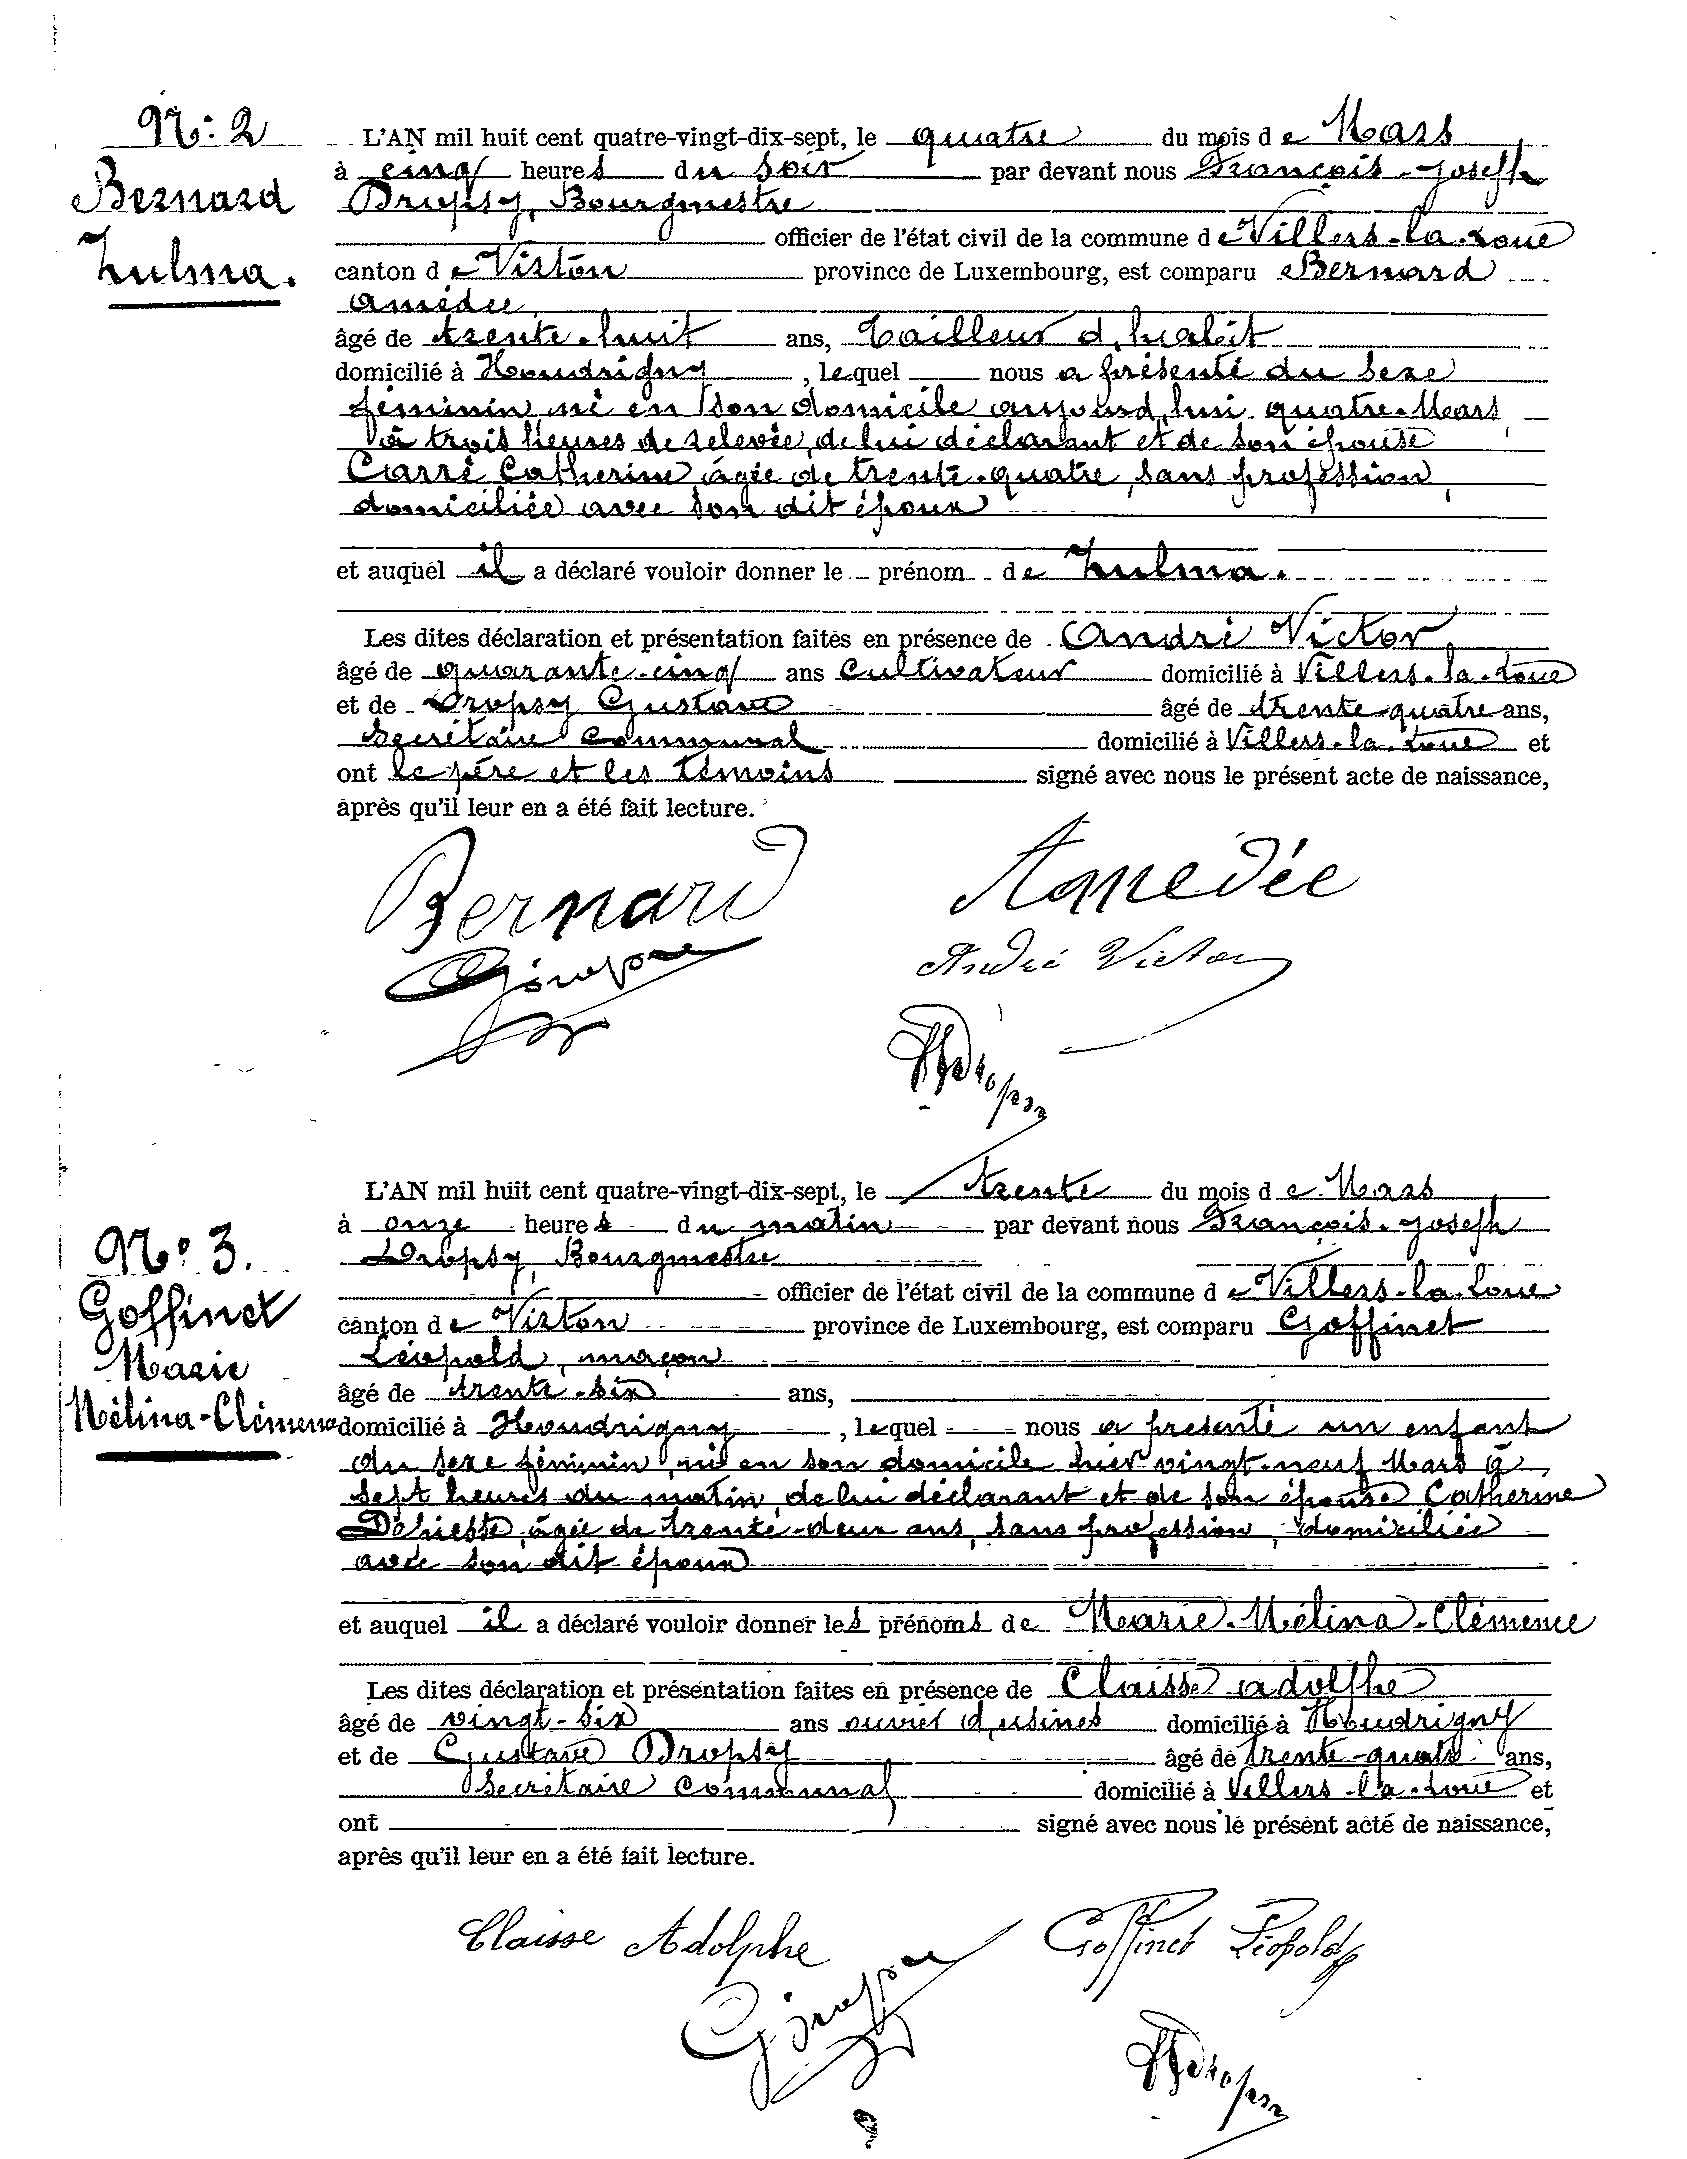 N: 2
Bernard
Zulma.
L'AN mil huit cent quatre-vingt-dix-sept, le quatre du mois de Mars
à cinq heures du soir par devant nous François-Joseph
Dropsy, Bourgmestre
officier de l'état civil de la commune de Villers-la-Loue
canton de Virton province de Luxembourg, est comparu Bernard
Amédée
âgé de trente-huit ans, Tailleur d'habit
domicilié à Houdrigny, lequel nous a présenté du sexe
féminin né en son domicile aujourd'hui quatre Mars
à trois heures de relevée, de lui déclarant et de son épouse
Carré Catherine âgée de trente-quatre, sans profession,
domiciliée avec son dit époux
et auquel il a déclaré vouloir donner le prénom de Zulma.
Les dites déclaration et présentation faites en présence de André Victor
âgé de quarante-cinq ans cultivateur domicilié à Villers-la-Loue
et de Dropsy Gustave âgé de trente-quatre ans,
Secrétaire communal domicilié à Villers-la-Loue et
ont le père et les témoins signé avec nous le présent acte de naissance,
après qu'il leur en a été fait lecture.
Bernard Amedée
GDropsy André Victor
FJDropsy
N° 3.
Goffinet
Marie
Mélina-Clémence
L'AN mil huit cent quatre-vingt-dix-sept, le trente du mois de Mars
à onze heures du matin par devant nous François-Joseph
Dropsy, Bourgmestre
officier de l'état civil de la commune de Villers-la-Loue
canton de Virton province de Luxembourg, est comparu Goffinet
Léopold, maçon
âgé de trente-six ans,
domicilié à Houdrigny, lequel nous a présenté un enfant
du sexe féminin, né en son domicile hier vingt-neuf Mars à
sept heures du matin, de lui déclarant et de son épouse Catherine
âgée de trente-deux ans, sans profession, domiciliée
avec son dit époux
et auquel il a déclaré vouloir donner les prénoms de Marie-Mélina-Clémence
Les dites déclaration et présentation faites en présence de Claisse Adolphe
âgé de vingt-six ans ouvrier d'usines domicilié à Houdrigny
et de Gustave Dropsy âgé de trente-quatre ans,
Secrétaire communal domicilié à Villers-la-Loue et
ont signé avec nous le présent acte de naissance,
après qu'il leur en a été fait lecture.
Claisse Adolphe Goffinet Léopold
GDropsy
FJDropsy